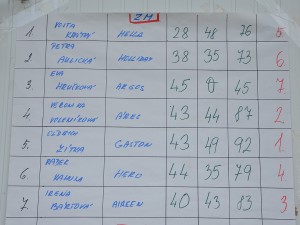 ZM
1. VOJTA KRATKÝ HELLA 28 48 76 5
2. PETRA HOLLIDAY 38 35 73 6
3. EVA HRUŠKOVÁ ARGOS 45 0 45 7
4. VERONIKA VOLENÍKOVÁ 43 44 87 2
5. OLDŘICH ŽITKA GALTON 43 49 92 1
6. KALINA HERO 44 35 79 4
7. IRENA BARTOVÁ AIREEN 40 43 83 3